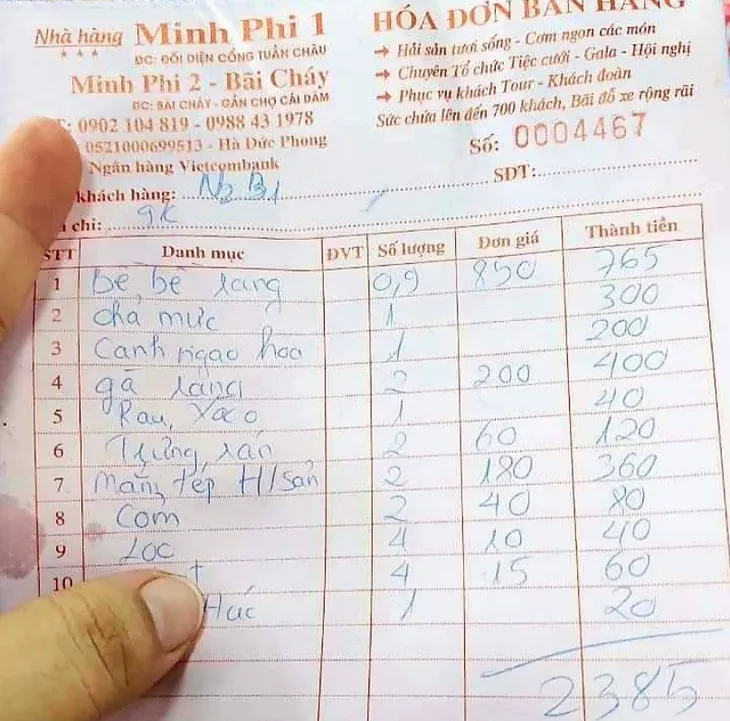 Nhà hàng Minh Phi 1
ĐC: ĐỐI DIỆN CỔNG TUẦN CHÂU
Minh Phi 2 - Bãi Cháy
ĐC: BÃI CHÁY - GẦN CHỢ CÁI DĂM
: 0902 104 819 - 0988 43 1978
0521000699513 - Hà Đức Phong
Ngân hàng Vietcombank
HÓA ĐƠN BÁN HÀNG
→ Hải sản tươi sống - Cơm ngon các món
→ Chuyên Tổ chức Tiệc cưới - Gala - Hội nghị
→ Phục vụ khách Tour - Khách đoàn
Sức chứa lên đến 700 khách, Bãi đỗ xe rộng rãi
Số: 0004467
khách hàng: N2 B1 SĐT:
chỉ: 9K
STT Danh mục ĐVT Số lượng Đơn giá Thành tiền
1 bề bề rang 0,9 850 765
2 chả mực 1 300
3 Canh ngao hoa 1 200
4 gà rang 2 200 400
5 Rau xào 1 40
6 Trứng rán 2 60 120
7 Mắm tép H/Sản 2 180 360
8 Cơm 2 40 80
9 Loc 4 10 40
10 4 15 60
Húc 1 20
2385